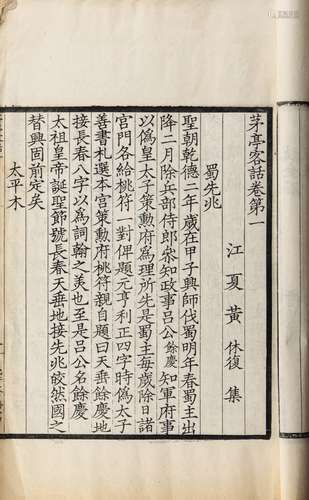 茅亭客話卷第一
江夏黃休復集
蜀先兆
聖朝乾德二年歲在甲子興師伐蜀明年春蜀主出
降二月除兵部侍郎參知政事呂公餘慶知軍府事
以偽皇太子策勳府為理所先是蜀主每歲除日諸
宮門各給桃符一對俾題元亨利正四字時偽太子
善書札選本宮策勳府桃符親自題曰天垂餘慶地
接長春八字以為詞翰之美也至是呂公名餘慶
太祖皇帝誕聖節號長春天垂地接先兆皎然國之
替興固前定矣
太平木